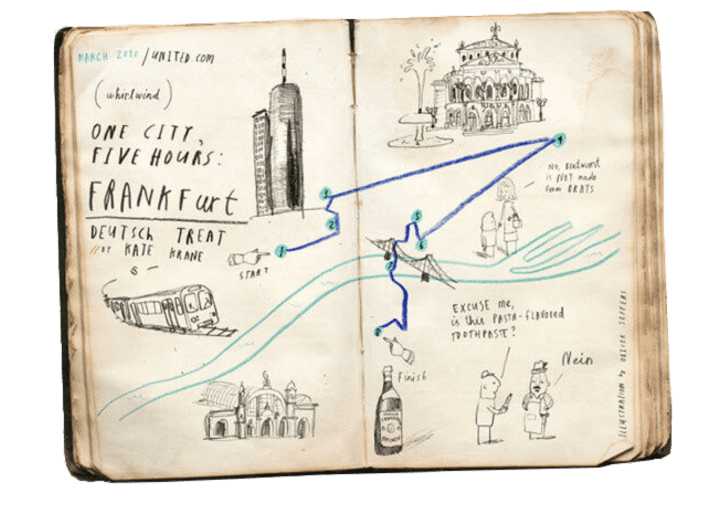 MARCH 2020 / UNITED.COM
(whirlwind)
ONE CITY,
FIVE HOURS:
FRANKFurt
DEUTSCH TREAT
// BY KATE KRANE
START
1
2
3
4
5
6
7
8
No, Bratwurst
is NOT made
from BRATS
EXCUSE ME,
is this PASTA-FLAVORED
TOOTHPASTE?
Nein
Finish
ILLUSTRATION by